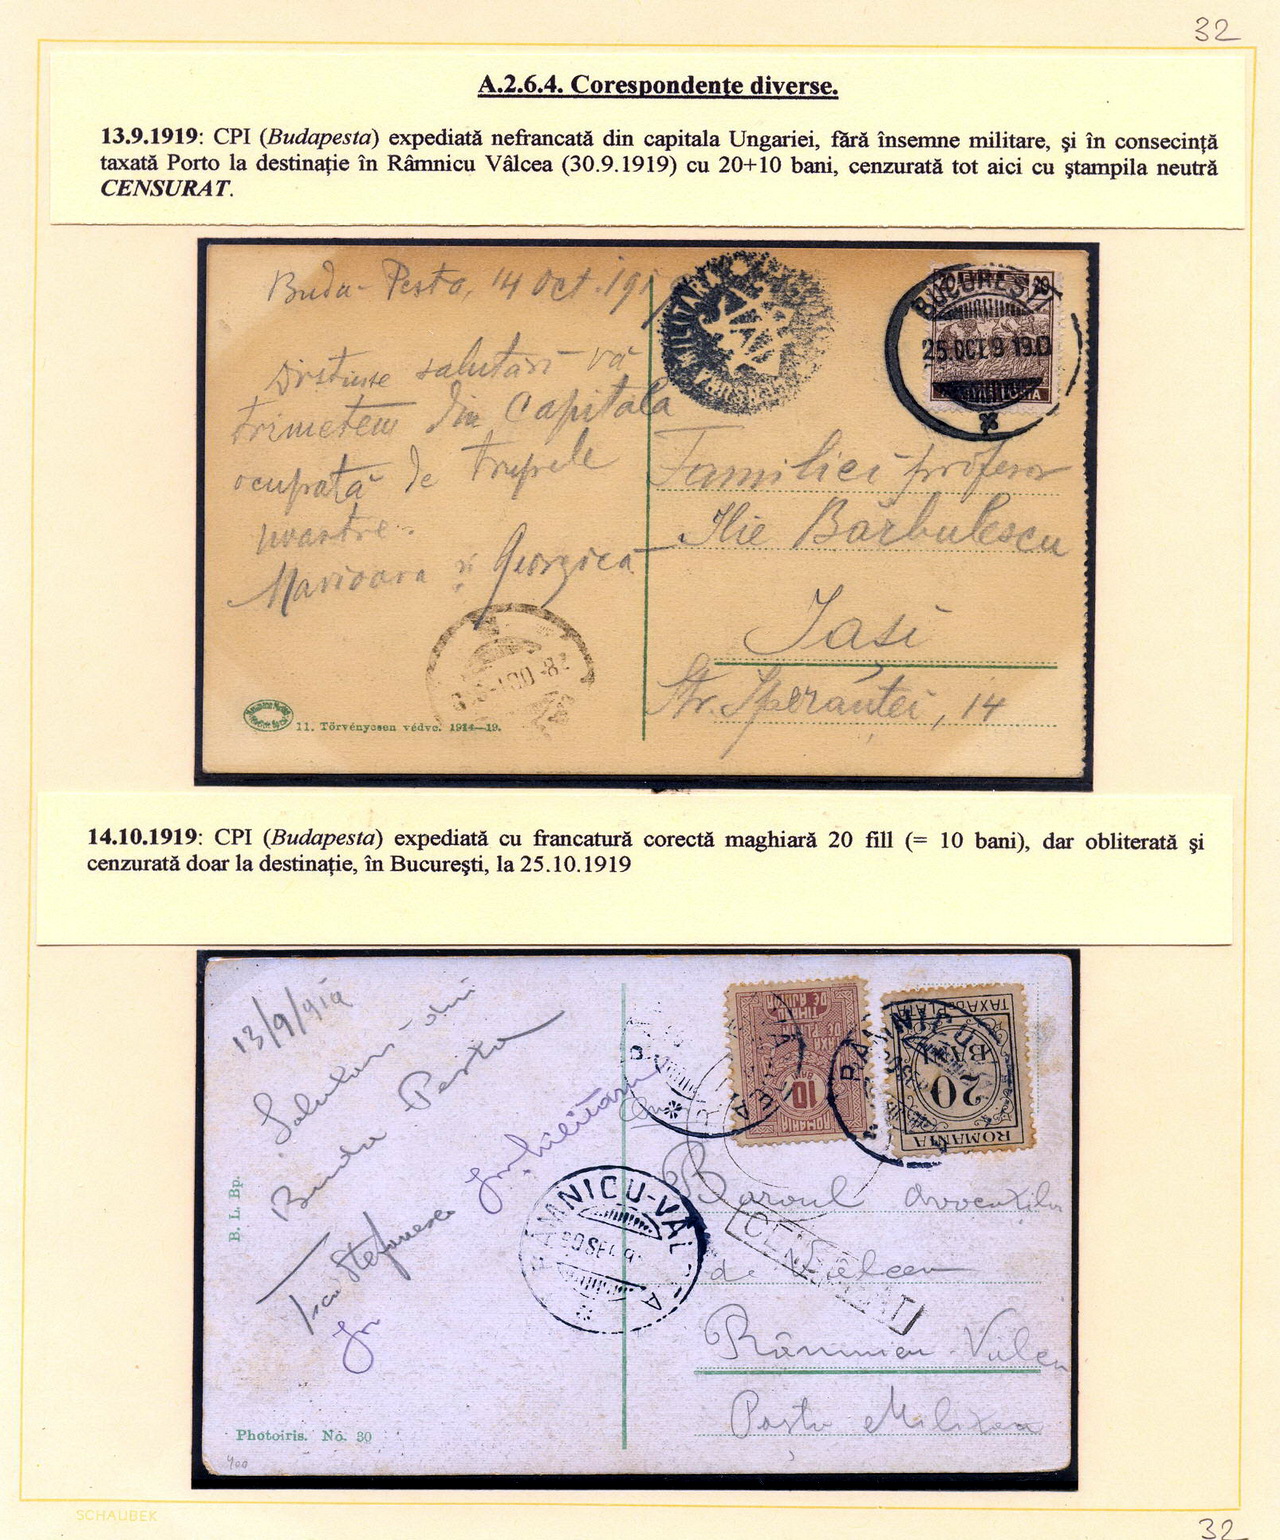 32
A.2.6.4. Corespondenţe diverse.
13.9.1919: CPI (Budapesta) expediată nefrancată din capitala Ungariei, fără însemne militare, şi în consecinţă
taxată Porto la destinaţie în Râmnicu Vâlcea (30.9.1919) cu 20+10 bani, cenzurată tot aici cu ştampila neutră
CENSURAT.
Buda-Pesta, 14 Oct. 191
Distinse salutări vă
trimetem din Capitala
ocupată de trupele
noastre.
Marioara şi Georgica
MILITARA
20
BUCUREŞTI
25.OCT.9 19.0
Familiei profesor
Ilie Bărbulescu
Iaşi
Str. Speranţei, 14
11. Törvényesen védve. 1914—19.
14.10.1919: CPI (Budapesta) expediată cu francatură corectă maghiară 20 fill (= 10 bani), dar obliterată şi
cenzurată doar la destinaţie, în Bucureşti, la 25.10.1919
13/9/919
Salutari din
Buda Pesta
Stefanescu
B. L. Bp.
Photoiris. No. 30
400
TIMBRU DE AJUTOR
TAXA DE PLATA
10 BANI
ROMANIA
TAXA DE PLATA
BANI
20
ROMANIA
RÂMNICU-VÂLCEA
30 SEP 9
CENSURAT
Baroul avocatilor
de Valcea
Râmnicu Valcea
Posta Militara
SCHAUBEK
32